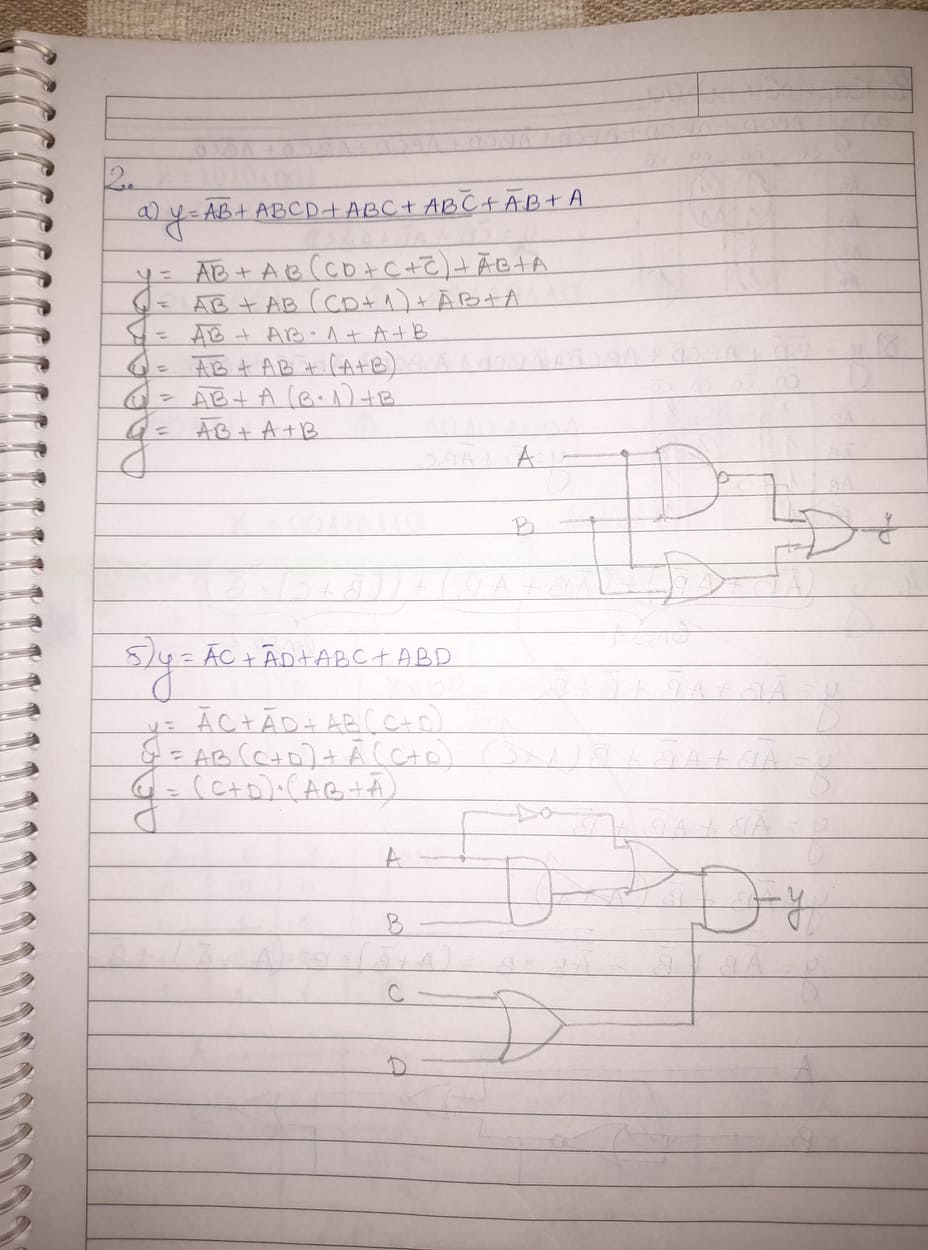 2.
а) y = A̅B̅ + ABCD + ABC + ABC̅ + A̅B + A
y = A̅B̅ + AB (CD + C + C̅) + A̅B + A
y = A̅B̅ + AB (CD + 1) + A̅B + A
y = A̅B̅ + AB · 1 + A + B
y = A̅B̅ + AB + (A+B)
y = A̅B̅ + A (B · 1) + B
y = A̅B̅ + A + B
A
B
y
б) y = A̅C + A̅D + ABC + ABD
y = A̅C + A̅D + AB (C+D)
y = AB (C+D) + A̅ (C+D)
y = (C+D) · (AB + A̅)
A
B
y
C
D